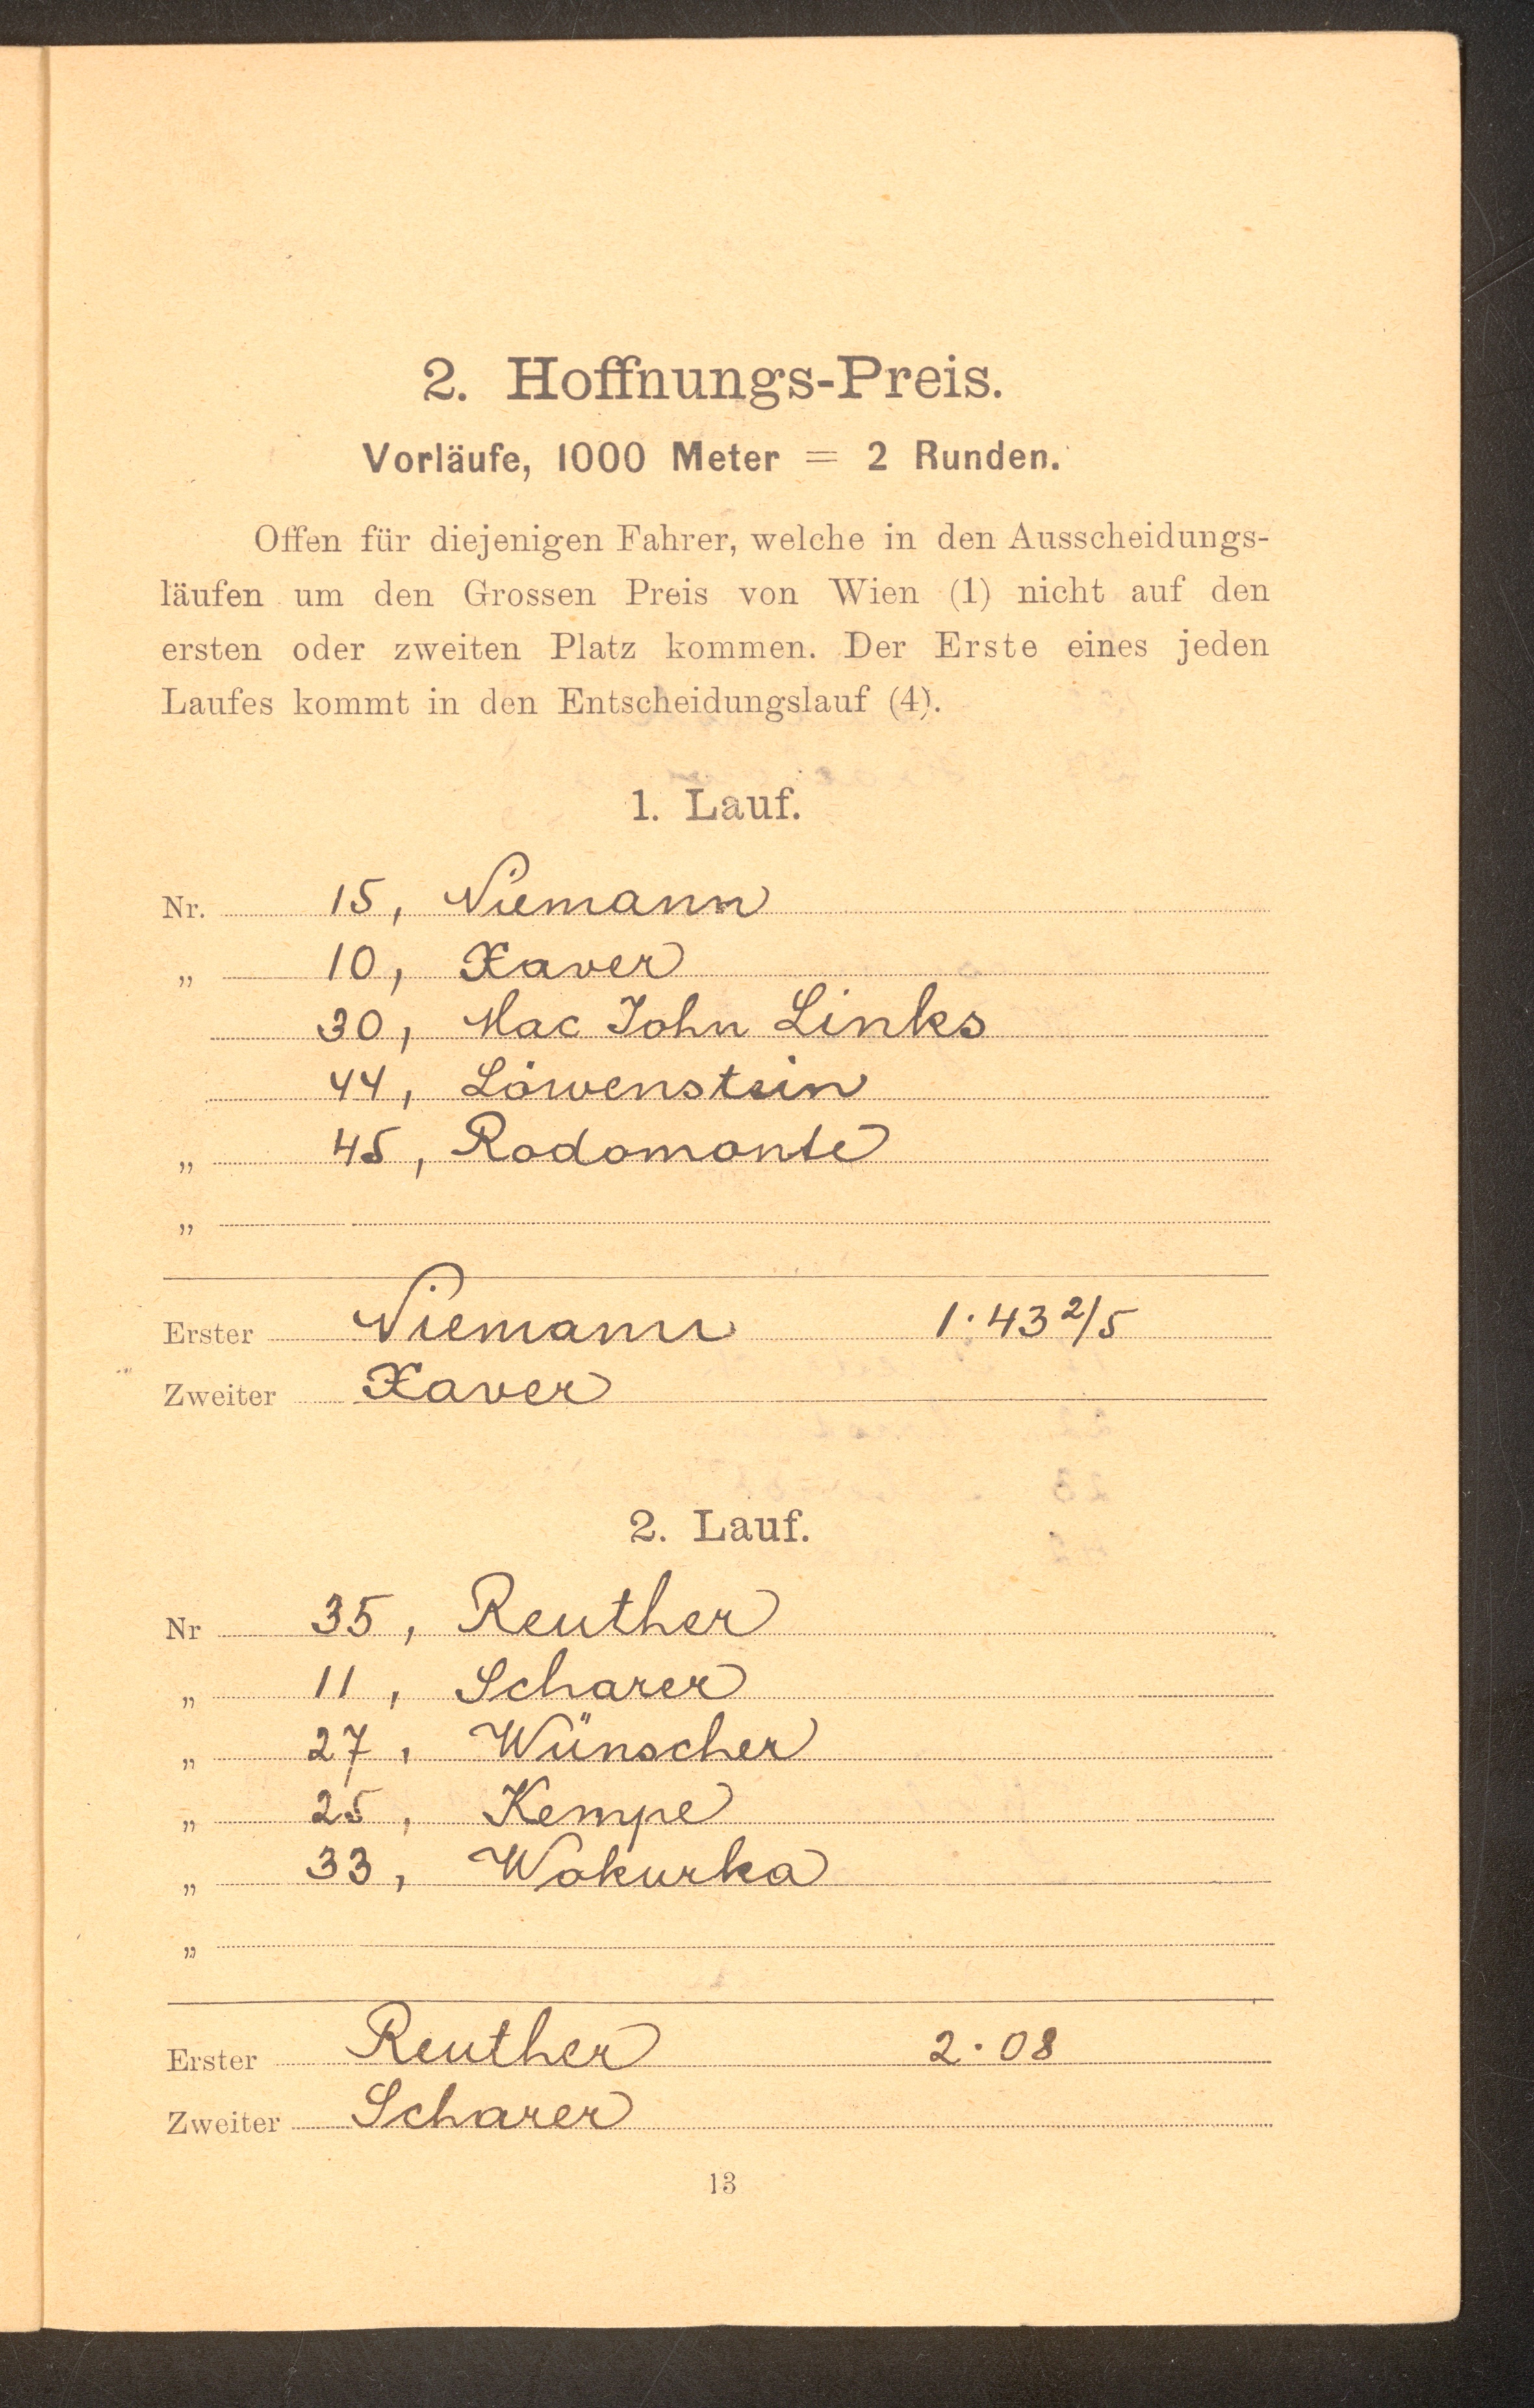 2. Hoffnungs-Preis.
Vorläufe, 1000 Meter = 2 Runden.
Offen für diejenigen Fahrer, welche in den Ausscheidungs-
läufen um den Grossen Preis von Wien (1) nicht auf den
ersten oder zweiten Platz kommen. Der Erste eines jeden
Laufes kommt in den Entscheidungslauf (4).
1. Lauf.
Nr. 15, Niemann
„ 10, Xaver
30, Mac John Links
44, Löwenstein
„ 45, Rodomonte
„
Erster Niemann 1·43 2/5
Zweiter Xaver
2. Lauf.
Nr 35, Reuther
„ 11, Scharer
„ 27, Wünscher
„ 25, Kempe
„ 33, Wokurka
„
Erster Reuther 2·08
Zweiter Scharer
13